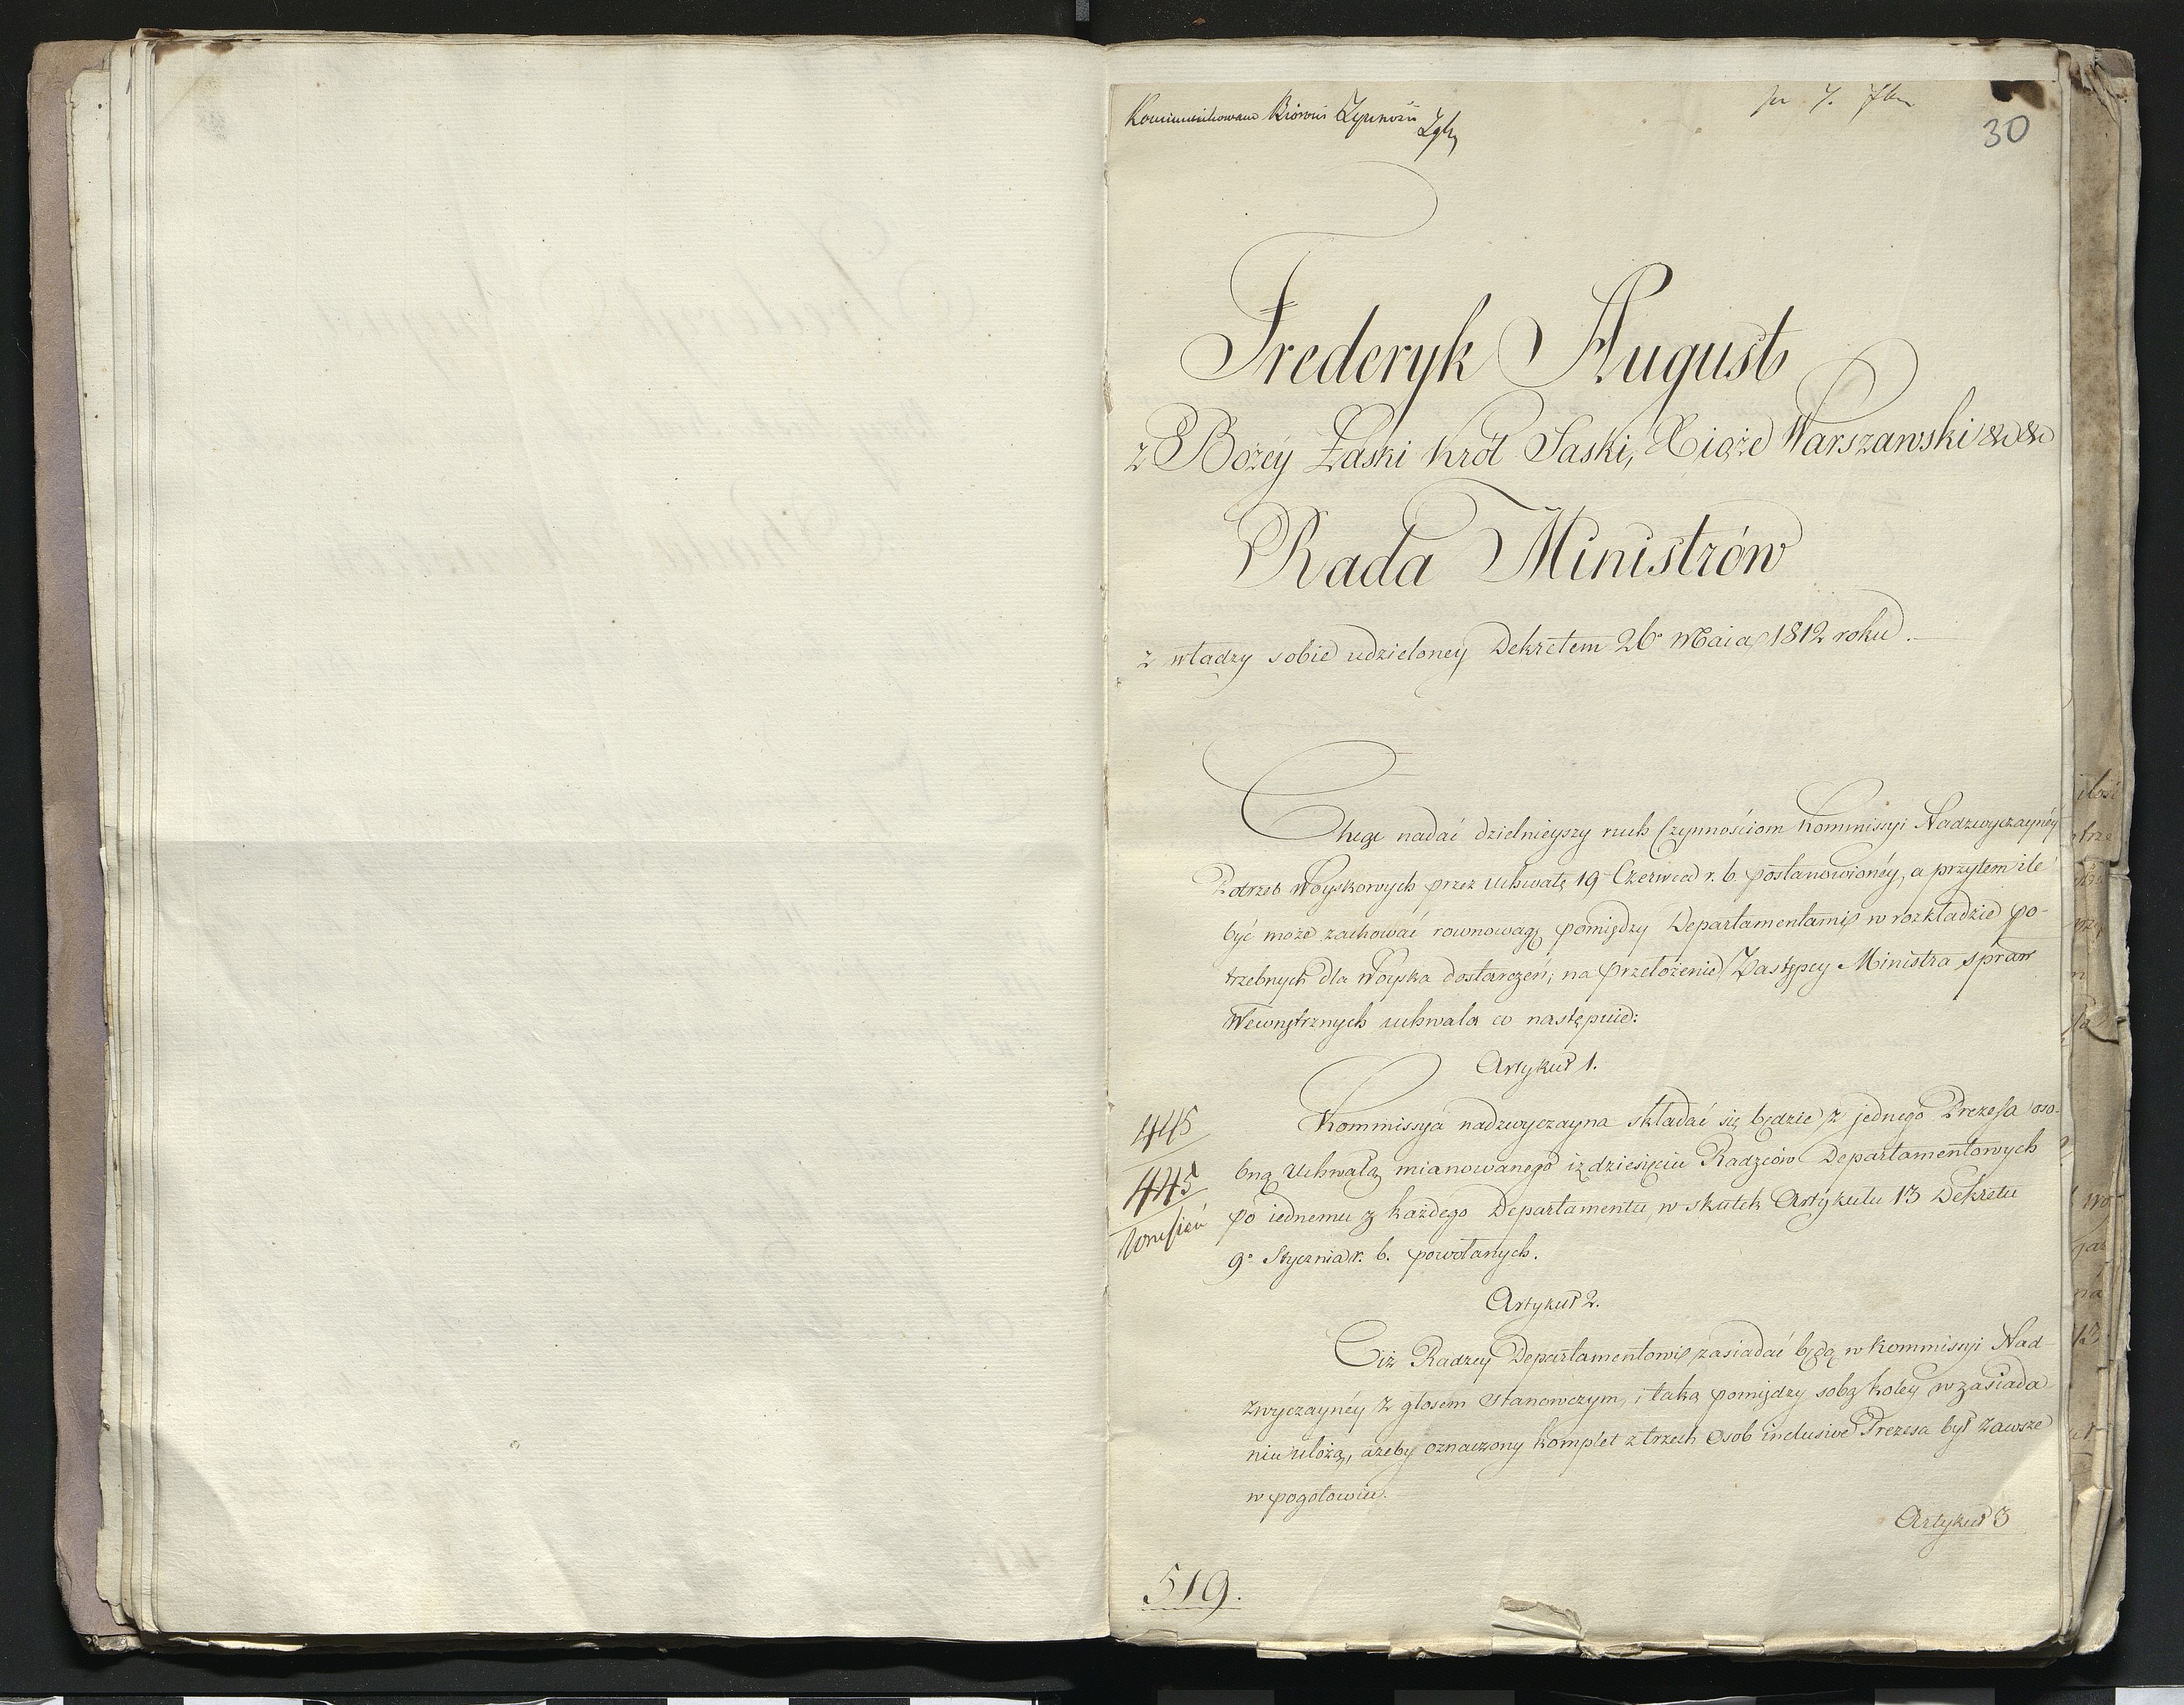 Kommunikowane
30
Frederyk August
z Bożey Łaski Król Saski, Xiąże Warszawski &c &c
Rada Ministrów
z władzy sobie udzieloney Dekretem 26° Maia 1812 roku.
Chcąc nadać dzielnieyszy ruch Czynnościom Kommissyi Nadzwyczaynéy
Potrzeb Woyskowych przez Uchwałę 19 Czerwca r. b. postanowionéy, a przytem ile
być może zachować rownowagę pomiędzy Departamentami w rozkładzie po-
trzebnych dla Woyska dostarczeń; na przełożenie Zastępcy Ministra spraw
Wewnętrznych uchwala co następuie:
Artykuł 1.
Kommissya nadzwyczayna składać się będzie z jednego Prezesa oso-
bną Uchwałą mianowanego i z dziesięciu Radzców Departamentowych
po iednemu z każdego Departamentu, w skutek Artykułu 13 Dekretu
9° Stycznia r. b. powołanych.
445
445
Artykuł 2.
Ciż Radzcy Departamentowi zasiadać będą w Kommissyi Nad-
zwyczaynéy z głosem stanowczym, i taką pomiędzy sobą koley w zasiada-
niu ułożą, ażeby oznaczony komplet z trzech Osob inclusive Prezesa był zawsze
w pogotowiu.
Artykuł 3
519.